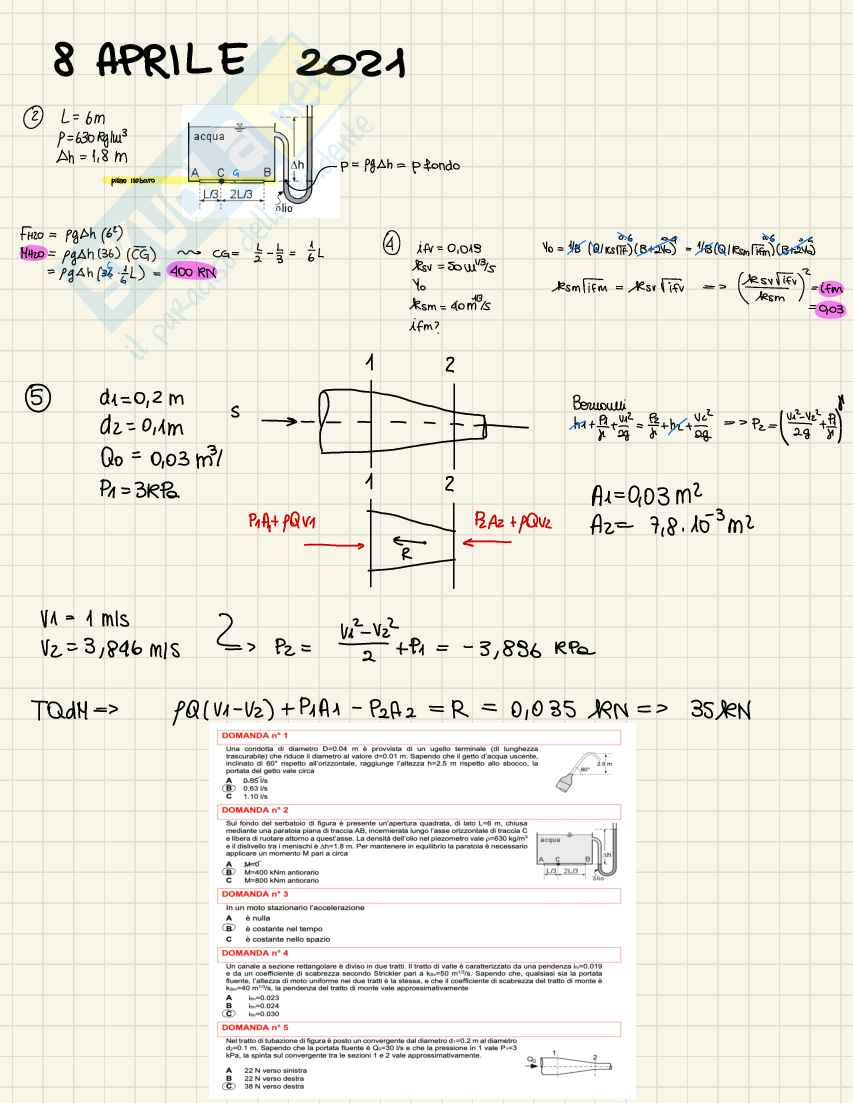 8 APRILE 2021
② L = 6m
ρ = 630 kg/m³
Δh = 1,8 m
piano isobaro
acqua
A C G B
L/3 2L/3
Δh
ōlio
P = ρgΔh = P fondo
FH2O = ρgΔh (6²)
MH2O = ρgΔh (36) (CG) ⇝ CG = L/2 - L/3 = 1/6 L
= ρgΔh (36 · 1/6 L) = 400 KN
④ ifv = 0,019
ksv = 50 m^1/3/s
Yo
ksm = 40 m^1/3/s
ifm?
ksm√ifm = ksv√ifv => (ksv√ifv / ksm)² = ifm
= 0,03
⑤ d1 = 0,2 m
d2 = 0,1 m
Q0 = 0,03 m³/
P1 = 3 kPa
S
1 2
Bernoulli
h1 + P1/γ + V1²/2g = P2/γ + h2 + V2²/2g => P2 = (V1²-V2²/2g + P1/γ)γ
1 2
P1A1 + ρQV1
P2A2 + ρQV2
R
A1 = 0,03 m²
A2 = 7,8 · 10⁻³ m²
V1 = 1 m/s
V2 = 3,846 m/s
=> P2 = V1²-V2²/2 + P1 = -3,896 kPa
TQdM => ρQ(V1-V2) + P1A1 - P2A2 = R = 0,035 kN => 35kN
DOMANDA n° 1
Una condotta di diametro D=0.04 m è provvista di un ugello terminale (di lunghezza
trascurabile) che riduce il diametro al valore d=0.01 m. Sapendo che il getto d'acqua uscente,
inclinato di 60° rispetto all'orizzontale, raggiunge l'altezza h=2.5 m rispetto allo sbocco, la
portata del getto vale circa
60°
2.5 m
A 0.85 l/s
B 0.63 l/s
C 1.10 l/s
DOMANDA n° 2
Sul fondo del serbatoio di figura è presente un'apertura quadrata, di lato L=6 m, chiusa
mediante una paratoia piana di traccia AB, incernierata lungo l'asse orizzontale di traccia C
e libera di ruotare attorno a quest'asse. La densità dell'olio nel piezometro vale ρ=630 kg/m³
e il dislivello tra i menischi è Δh=1.8 m. Per mantenere in equilibrio la paratoia è necessario
applicare un momento M pari a circa
acqua
A C B
L/3 2L/3
Δh
ōlio
A M=0
B M=400 kNm antiorario
C M=800 kNm antiorario
DOMANDA n° 3
In un moto stazionario l'accelerazione
A è nulla
B è costante nel tempo
C è costante nello spazio
DOMANDA n° 4
Un canale a sezione rettangolare è diviso in due tratti. Il tratto di valle è caratterizzato da una pendenza ifv=0.019
e da un coefficiente di scabrezza secondo Strickler pari a kSv=50 m^1/3/s. Sapendo che, qualsiasi sia la portata
fluente, l'altezza di moto uniforme nei due tratti è la stessa, e che il coefficiente di scabrezza del tratto di monte è
kSm=40 m^1/3/s, la pendenza del tratto di monte vale approssimativamente
A ifm=0.023
B ifm=0.024
C ifm=0.030
DOMANDA n° 5
Nel tratto di tubazione di figura è posto un convergente dal diametro d1=0.2 m al diametro
d2=0.1 m. Sapendo che la portata fluente è Q0=30 l/s e che la pressione in 1 vale P1=3
kPa, la spinta sul convergente tra le sezioni 1 e 2 vale approssimativamente.
Q0
1 2
A 22 N verso sinistra
B 22 N verso destra
C 38 N verso destra